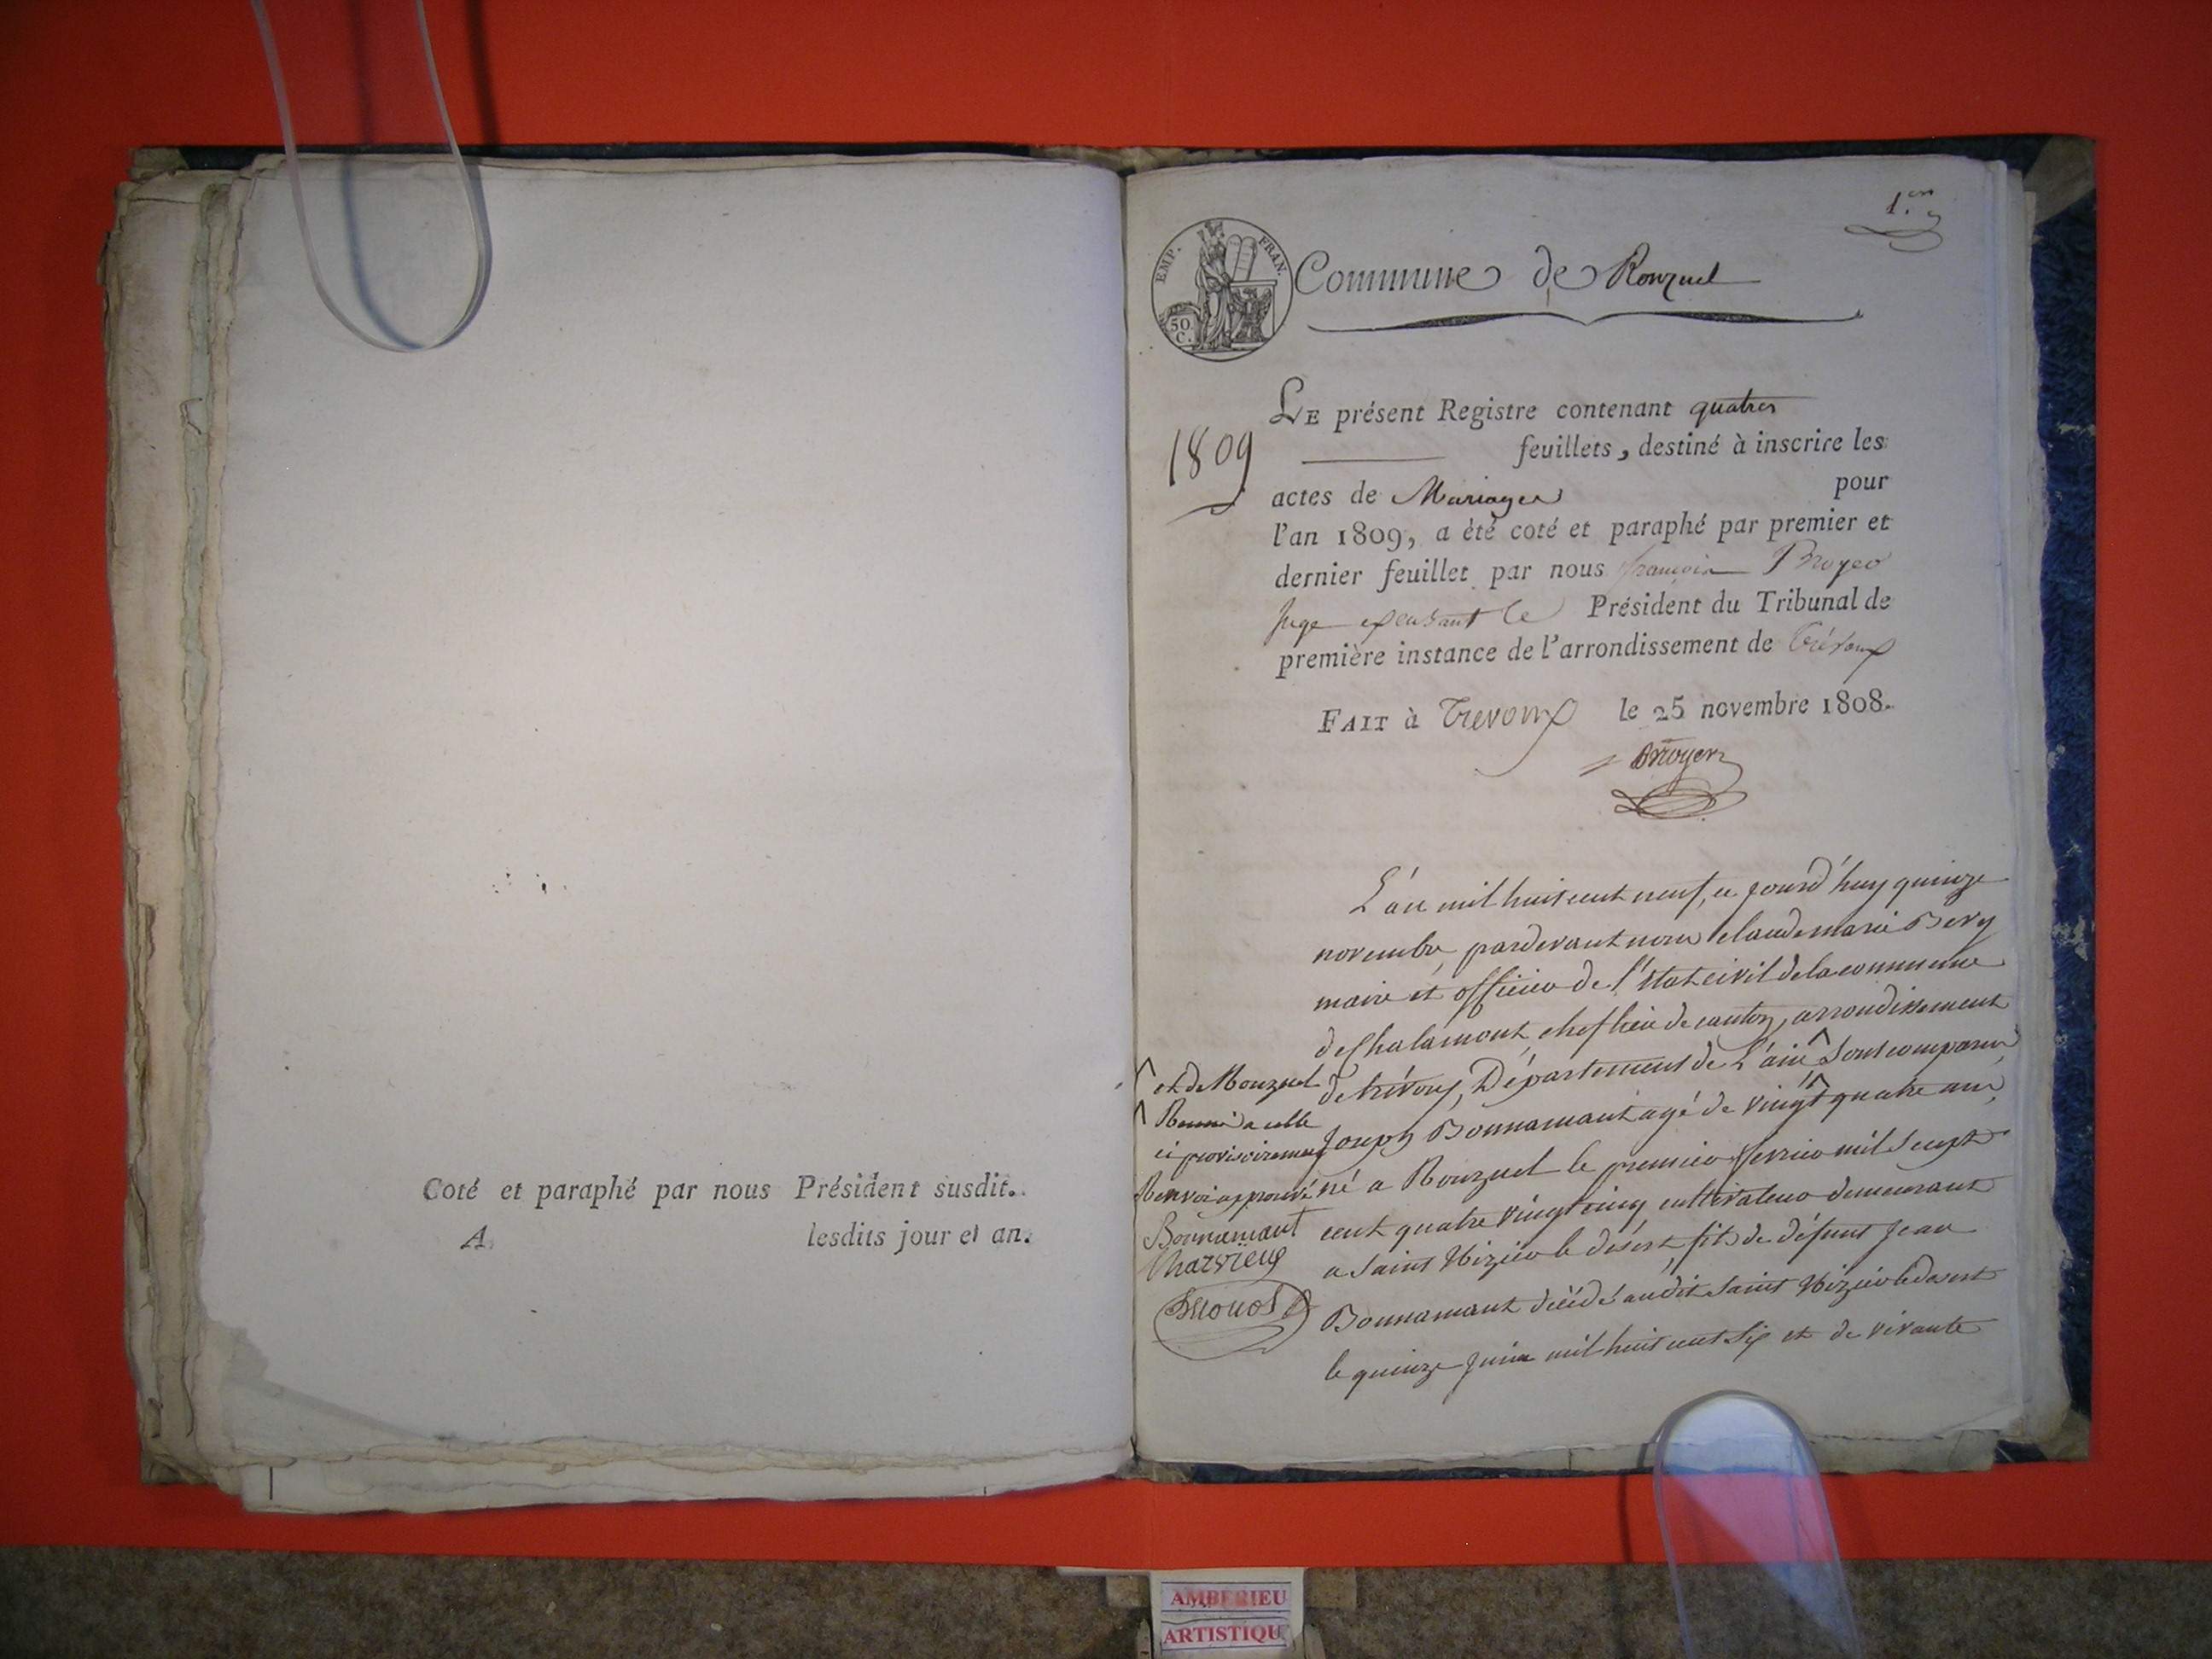 Coté et paraphé par nous Président susdit.
A lesdits jour et an.
1.er
EMP. FRAN.
50 C.
Commune de Ronzuel
LE présent Registre contenant quatre
feuillets, destiné à inscrire les
1809
actes de Mariages pour
l'an 1809, a été coté et paraphé par premier et
dernier feuillet par nous françois Broyer
Juge exerçant le Président du Tribunal de
première instance de l'arrondissement de Trévoux
FAIT à Trevoux le 25 novembre 1808.
Broyer
L'an mil huit cent neuf, ce jourd'huy quinze
novembre, pardevant nous claude marie Bery
maire et officier de l'état civil de la commune
de Chalamont, chef lieu de canton, arrondissement
de trévoux, Département de L'ain ^ sont comparus
Joseph Bonnamant agé de vingt quatre ans,
né a Ronzuel le premier fevrier mil sept
cent quatre vingt cinq cultivateur demeurant
a Saint Nizier le désert, fils de défunt Jean
Bonnamant décédé audit Saint Nizier le desert
le quinze Juin mil huit cent six et de vivante
^ et de Ronzuel
^ Réunie a celle
ci provisoirement
Renvoi approuvé
Bonnamant
Charvieux
AMBERIEU
ARTISTIQU